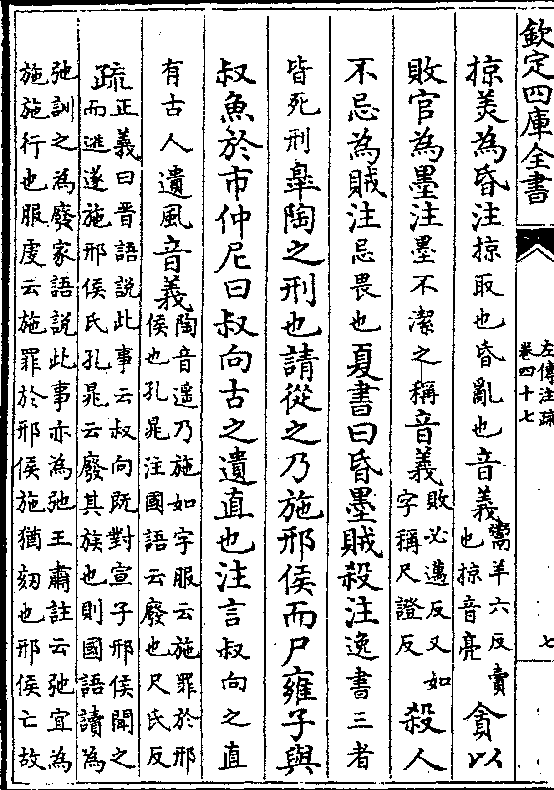 欽定四庫全書
左傳注疏
卷四十七
七
掠美為昏注掠取也昏亂也音義鬻羊六反賣也掠音亮貪以
敗官為墨注墨不潔之稱音義敗必邁反又如字稱尺證反殺人
不忌為賊注忌畏也夏書曰昏墨賊殺注逸書三者
皆死刑皋陶之刑也請從之乃施邢侯而尸雍子與
叔魚於市仲尼曰叔向古之遺直也注言叔向之直
有古人遺風音義陶音遥乃施如字服云施罪於邢侯也孔晁注國語云廢也尺氏反
疏正義曰晋語説此事云叔向既對宣子邢侯聞之而逃遂施邢侯氏孔晁云廢其族也則國語讀為
弛訓之為廢家語説此事亦為弛王肅註云弛宜為施施行也服虔云施罪於邢侯施猶劾也邢侯亡故